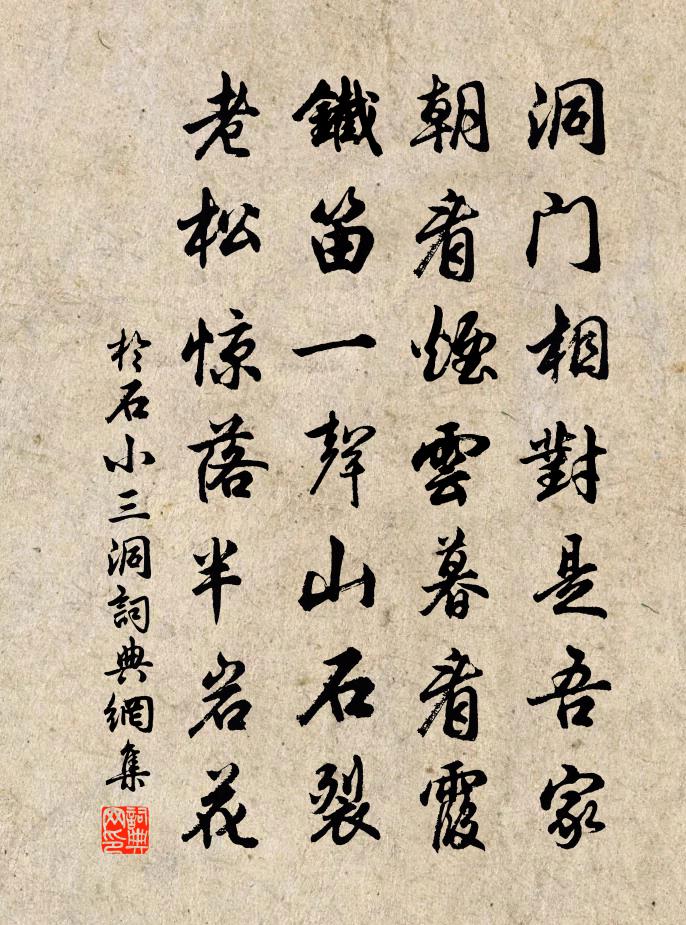 洞门相對是吾家
朝看煙雲暮看霞
鐵笛一聲山石裂
老松惊落半岩花
於石小三洞詞典網集
詞典网印